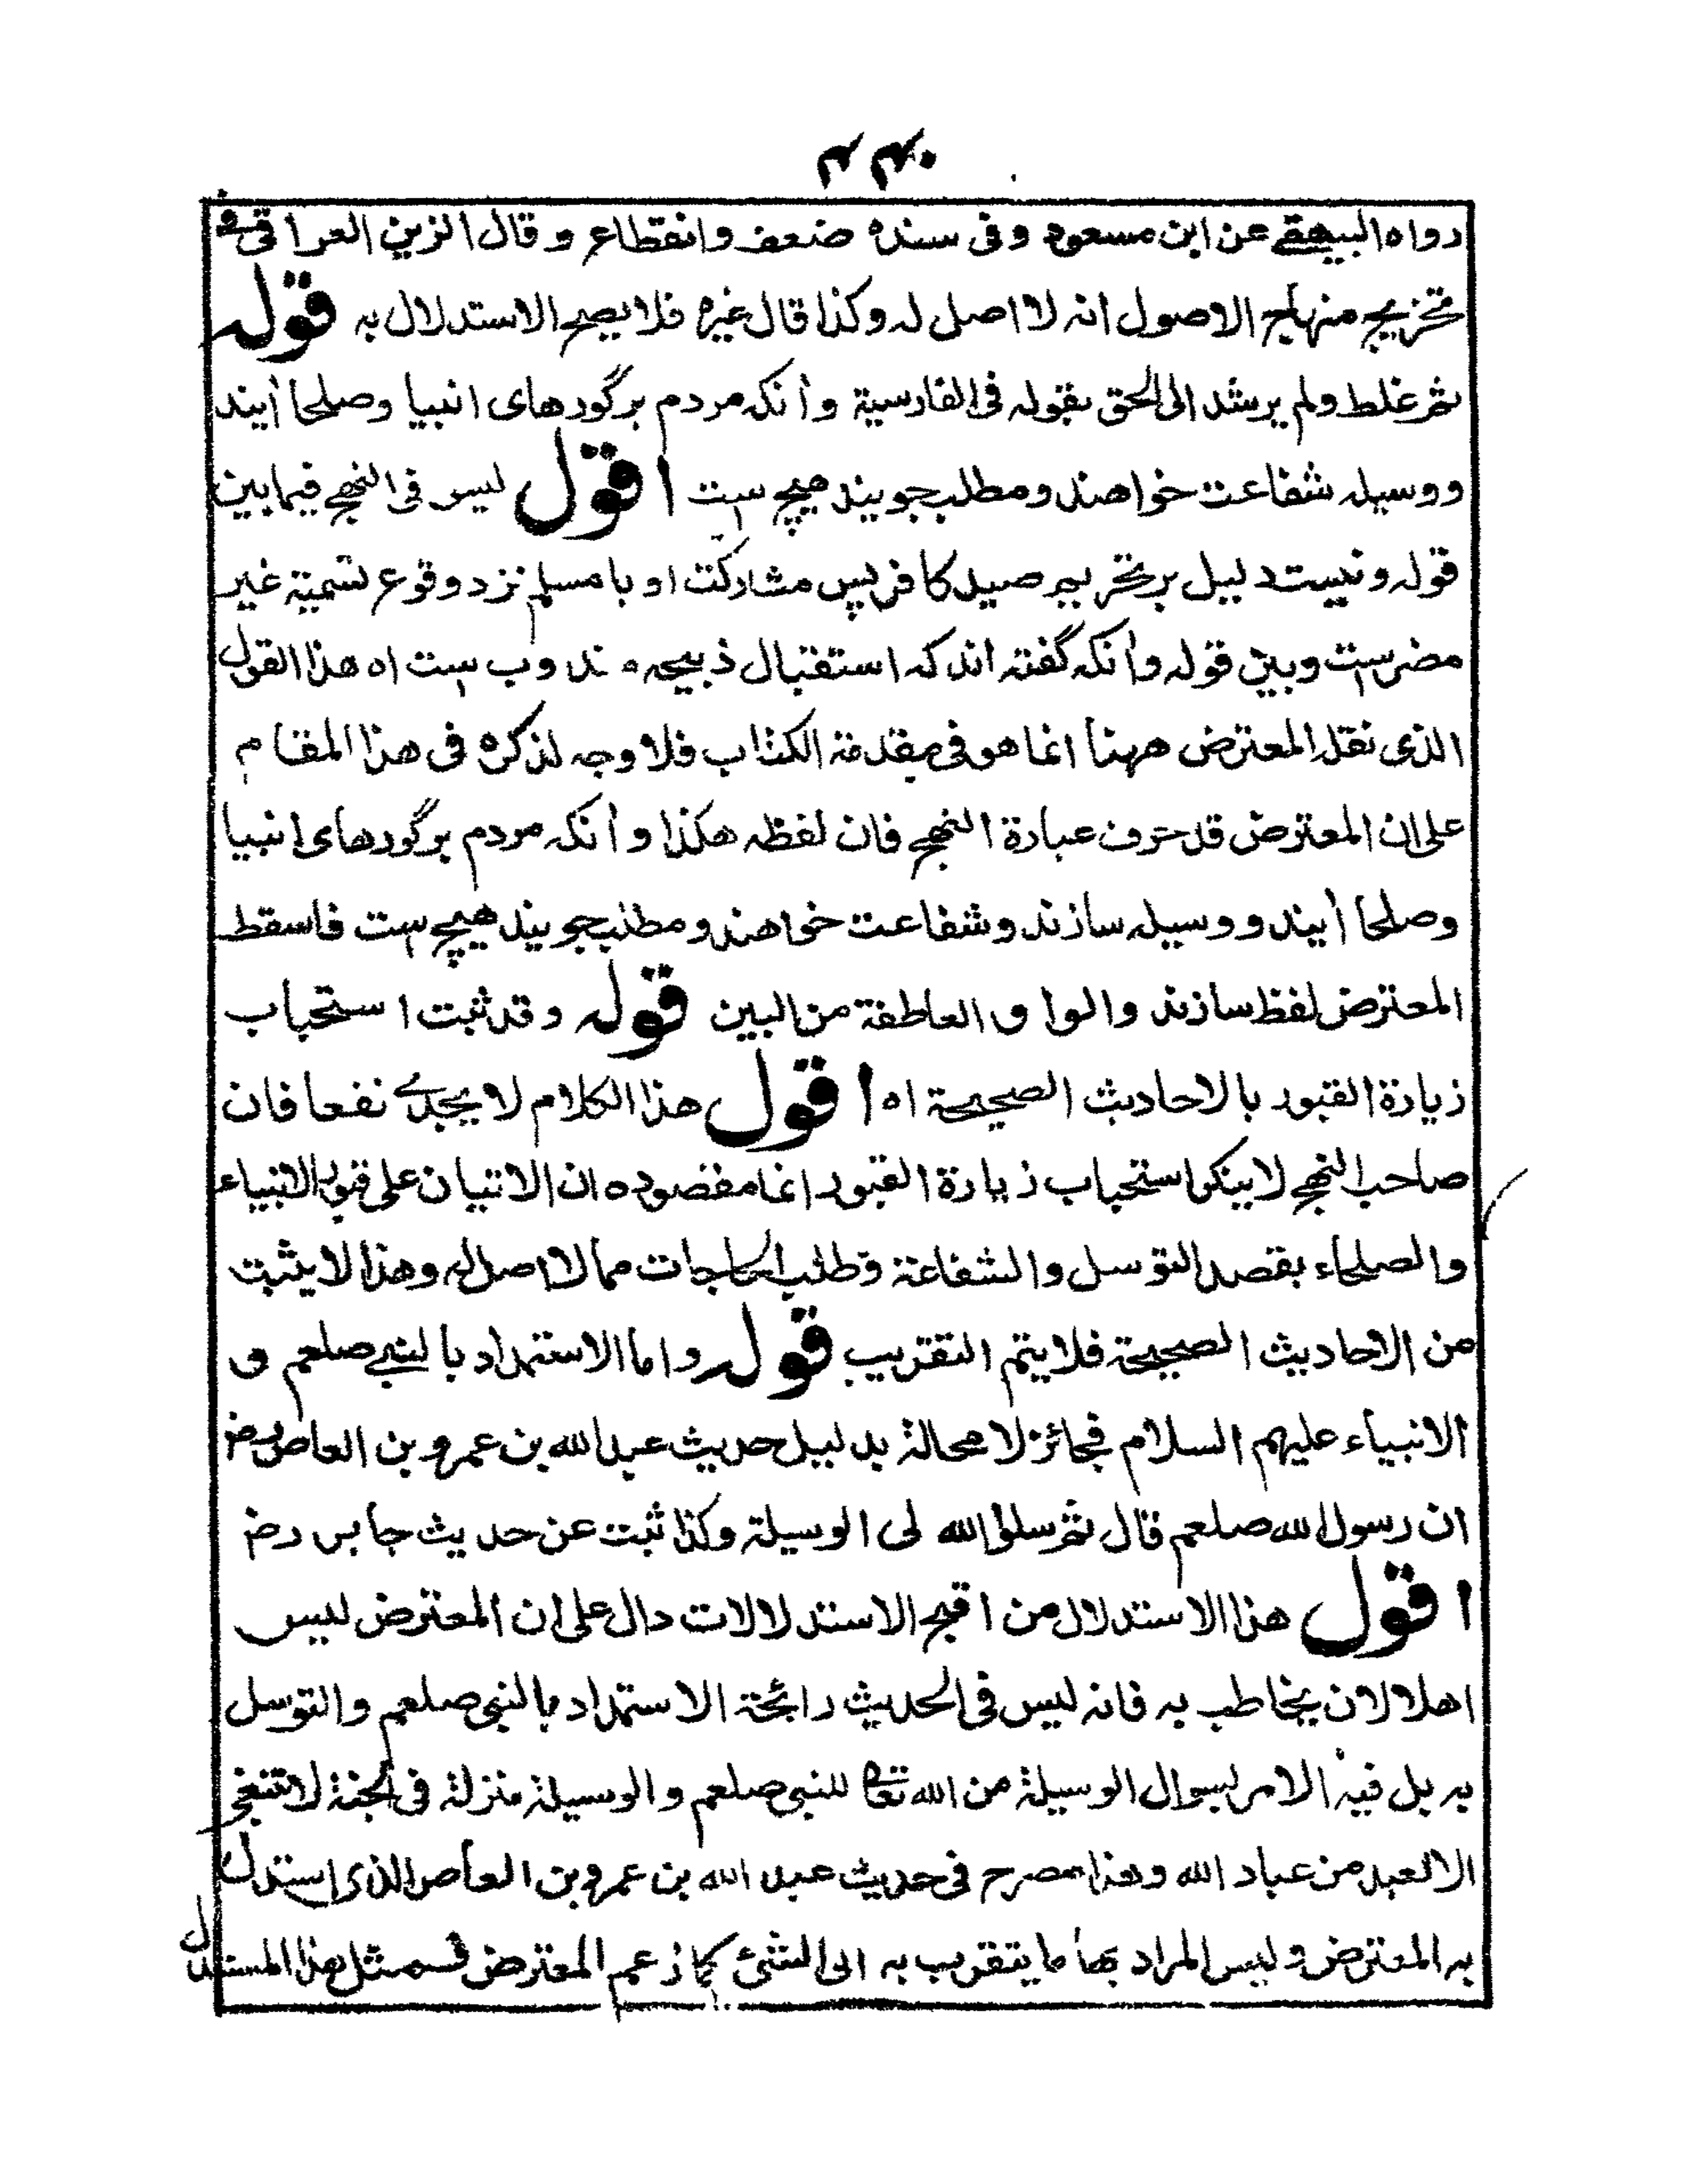 رواه البيهقے عن ابن مسعود وفى سنده ضعف وانقطاع وقال الزين العراقى فے
تخريج منهاج الاصول انه لا اصل له وكذا قال غيره فلا يصح الاستدلال به قوله
ثم غلط ولم يرشد الى الحق بقوله فى الفارسية وآنكه مردم برگورهاى انبيا وصلحا آيند
ووسيله شفاعت خواهند ومطلب جويند هيچ ست اقول ليس فى النهج فيما بين
قوله ونيست دليل بر تحريم صيد كافر پس مشاركت او با مسلم نزد وقوع تسمية غير
مضر ست وبين قوله وآنكه گفته اند كه استقبال ذبيحه مندوب ست اه هذا القول
الذى نقل المعترض ههنا انما هو فى مقدمة الكتاب فلا وجه لذكره فى هذا المقام
على ان المعترض قد حرف عبارة النهج فان لفظه هكذا وآنكه مردم برگورهاى انبيا
وصلحا آيند ووسيله سازند وشفاعت خواهند ومطلب جويند هيچ ست فاسقط
المعترض لفظ سازند والواو العاطفة من البين قوله وقد ثبت استحباب
زيارة القبور بالاحاديث الصحيحة اه اقول هذا الكلام لا يجدے نفعا فان
صاحب النهج لا ينكر استحباب زيارة القبور انما مقصوده ان الاتيان على قبور الانبياء
والصلحاء بقصد التوسل والشفاعة وطلب الحاجات مما لا اصل له وهذا لا يثبت
من الاحاديث الصحيحة فلا يتم التقريب قوله واما الاستمداد بالنبے صلعم و
الانبياء عليهم السلام فجائز لا محالة بدليل حديث عبد الله بن عمرو بن العاص رض
ان رسول الله صلعم قال ثم سلوا الله لى الوسيلة وكذا ثبت عن حديث جابر رض
اقول هذا الاستدلال من اقبح الاستدلالات دال على ان المعترض ليس
اهلا لان يخاطب به فانه ليس فى الحديث رائحة الاستمداد بالنبى صلعم والتوسل
به بل فيه الامر بسوال الوسيلة من الله تعا للنبى صلعم والوسيلة منزلة فى الجنة لا تنبغى
الا لعبد من عباد الله وهذا مصرح فى حديث عبد الله بن عمرو بن العاص الذى استدل
به المعترض وليس المراد بها ما يتقرب به الى الشئ كما زعم المعترض فمثل هذا المستدل